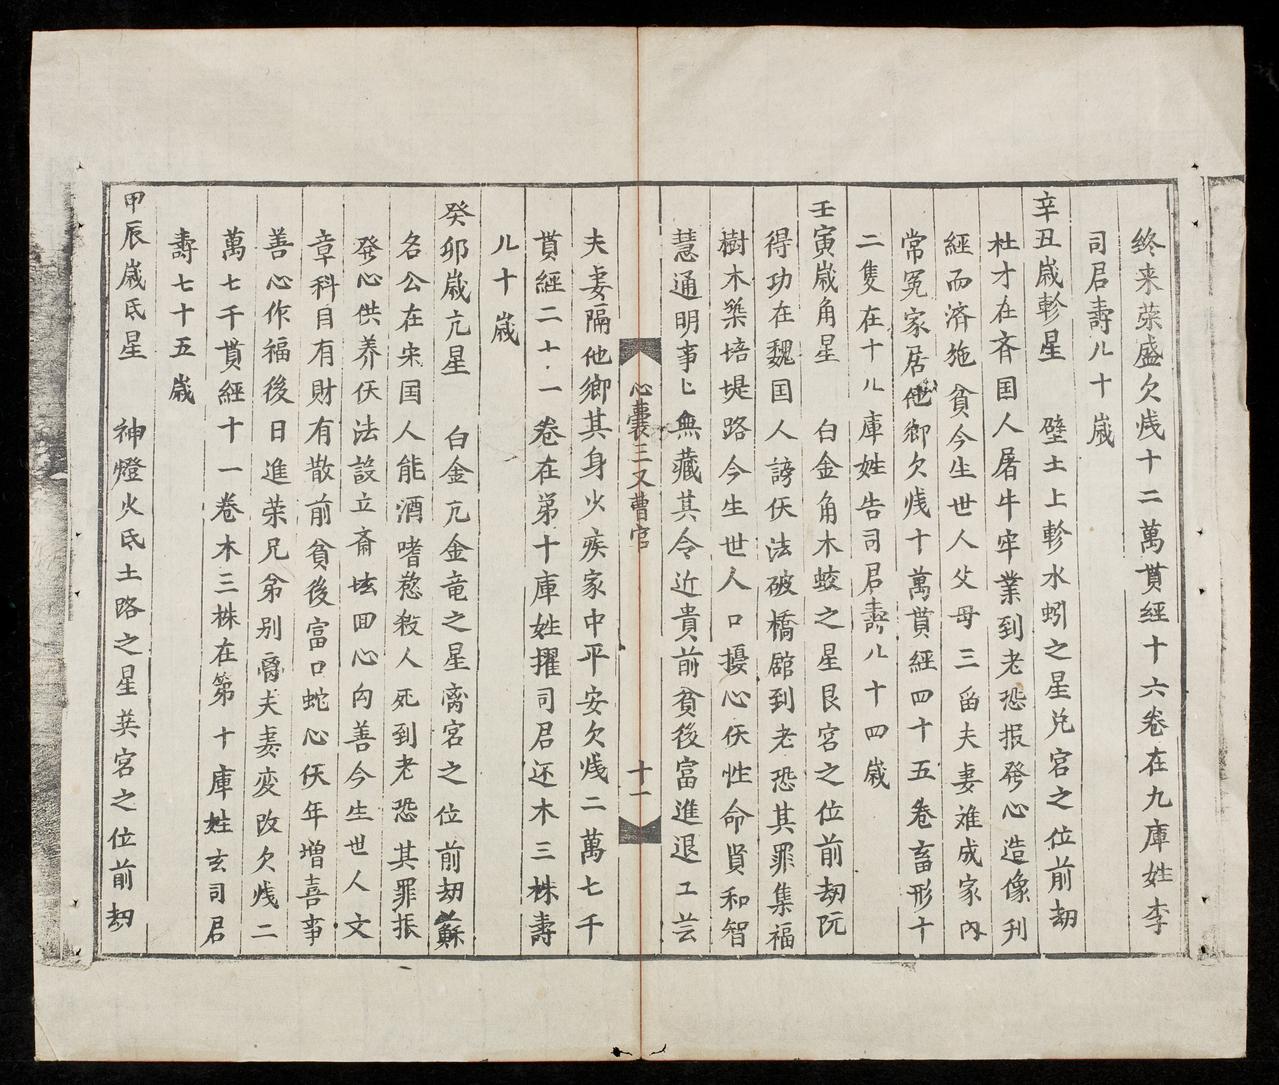 终来荣盛欠㦮十二萬貫經十六卷在九庫姓李
司君壽八十歲
辛丑歲軫星 壁土上軫水蚓之星兑宮之位前劫
杜才在斉国人屠牛牢業到老恐报發心造像刋
經而济施貧今生世人父母三畄夫妻难成家内
常冤家居他鄉欠㦮十萬貫經四十五卷畜形十
二隻在十八庫姓告司君壽八十四歲
壬寅歲角星 白金角木蛟之星艮宮之位前劫阮
得功在魏囯人謗仸法破橋廨到老恐其罪集福
樹木築培堤路今生世人口擾心仸性命贤和智
慧通明事〻無藏其令近貴前貧後富進退工芸
心囊三又曹官 十一
夫妻隔他鄉其身火疾家中平安欠㦮二萬七千
貫經二十一卷在第十庫姓擢司君还木三株壽
八十歲
癸卯歲亢星 白金亢金竜之星离宮之位前劫蘇
名公在宋国人能酒嗜慾殺人死到老恐其罪振
發心供养仸法設立斋坛回心向善今生世人文
章科目有財有散前貧後富口蛇心仸年增喜事
善心作福後日進荣兄弟别离夫妻变改欠㦮二
萬七千貫經十一卷木三株在第十庫姓玄司君
壽七十五歲
甲辰歲氐星 神燈火氐土路之星英宮之位前劫